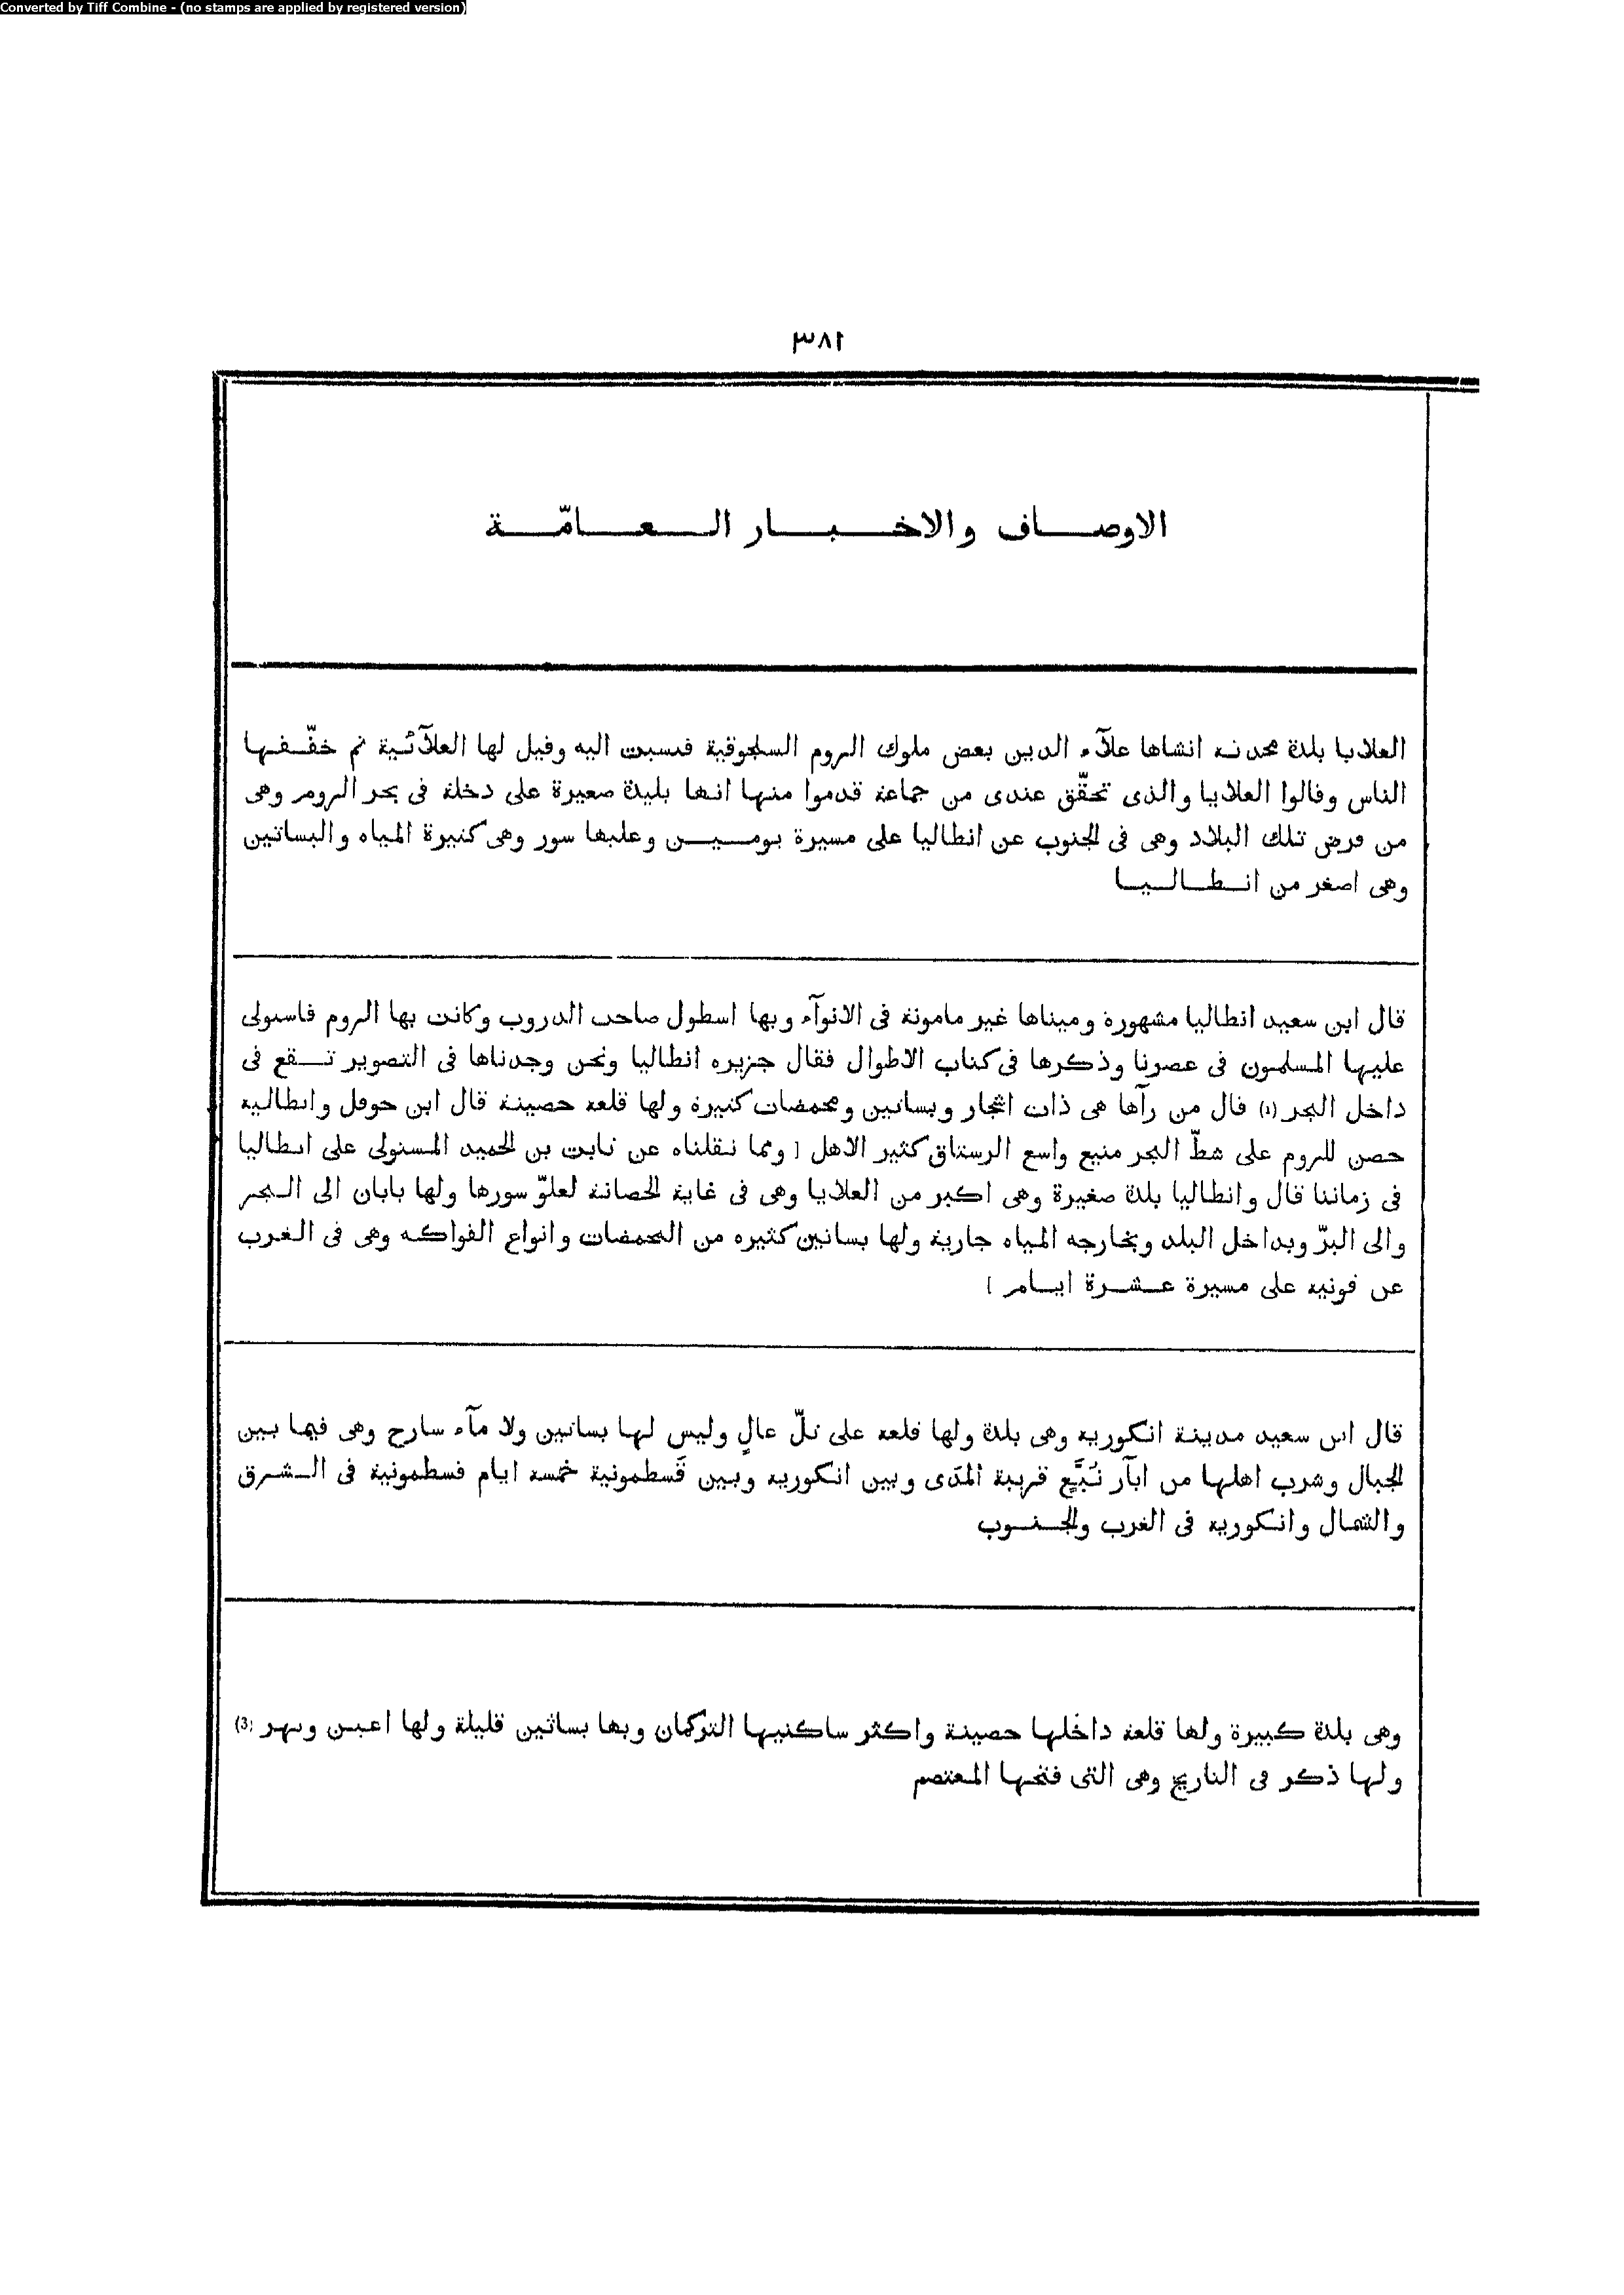 Converted by Tiff Combine - (no stamps are applied by registered version)
٣٨١
الاوصاف والاخبار العامّة
العلايا بلدة محدثة انشاها علآء الدين بعض ملوك الروم السلجوقية فنسبت اليه وقيل لها العلآئية ثم خفّفها
الناس وقالوا العلايا والذى تحقّق عندى من جماعة قدموا منها انها بليدة صغيرة على دخلة فى بحر الروم وهى
من فرض تلك البلاد وهى فى الجنوب عن انطاليا على مسيرة يومين وعليها سور وهى كثيرة المياه والبساتين
وهى اصغر من انطاليا
قال ابن سعيد انطاليا مشهورة وميناها غير مامونة فى الانوآء وبها اسطول صاحب الدروب وكانت بها الروم فاستولى
عليها المسلمون فى عصرنا وذكرها فى كتاب الاطوال فقال جزيره انطاليا ونحن وجدناها فى التصوير تقع فى
داخل البحر (1) قال من رآها هى ذات اشجار وبساتين ومحمضات كثيرة ولها قلعة حصينة قال ابن حوقل وانطالية
حصن للروم على شطّ البحر منيع واسع الرستاق كثير الاهل [ ومما نقلناه عن ثابت بن الحميد المستولى على انطاليا
فى زماننا قال وانطاليا بلدة صغيرة وهى اكبر من العلايا وهى فى غاية الحصانة لعلوّ سورها ولها بابان الى البحر
والى البرّ وبداخل البلد وبخارجه المياه جارية ولها بساتين كثيره من المحمضات وانواع الفواكه وهى فى الغرب
عن قونيه على مسيرة عشرة ايام ]
قال ابن سعيد مدينة انكوريه وهى بلدة ولها قلعة على تلّ عالٍ وليس لها بساتين ولا مآء سارح وهى فيما بين
الجبال وشرب اهلها من ابآر نَبَّع قريبة المَدى وبين انكوريه وبين قَسطمونية خمسه ايام قسطمونية فى الشرق
والشمال وانكوريه فى الغرب والجنوب
وهى بلدة كبيرة ولها قلعة داخلها حصينة واكثر ساكنيها التركمان وبها بساتين قليلة ولها اعين ونهر (3)
ولها ذكر فى التاريخ وهى التى فتحها المعتصم